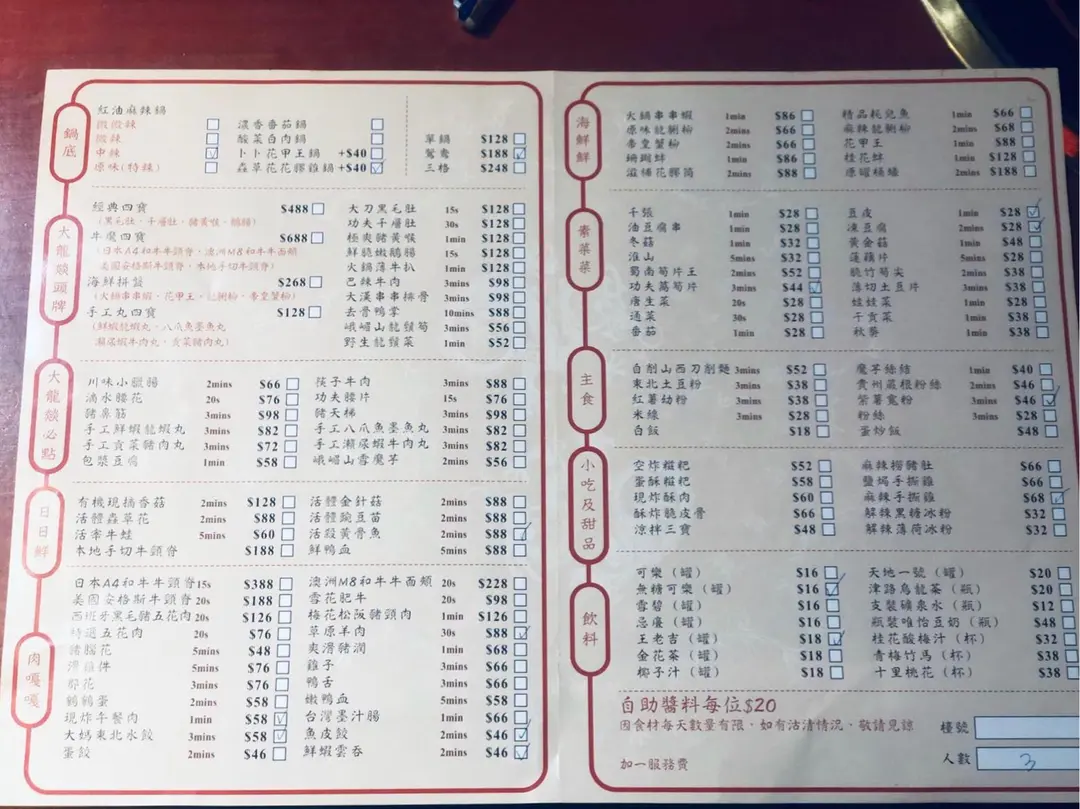 鍋底
紅油麻辣鍋
微微辣 濃香番茄鍋
微辣 酸菜白肉鍋 單鍋 $128
中辣 卜卜花甲王鍋 +$40 鴛鴦 $188
原味(特辣) 蟲草花花膠雞鍋 +$40 三格 $248
大龍燚頭牌
經典四寶 $488
(黑毛肚、千層肚、豬黃喉、鵝腸)
牛魔四寶 $688
(日本A4和牛牛頸脊、澳洲M8和牛牛面頰
美國安格斯牛頸脊、本地手切牛頸脊)
海鮮拼盤 $268
(火鍋串串蝦、花甲王、龍脷柳、帝皇蟹柳)
手工丸四寶 $128
(鮮蝦龍蝦丸、八爪魚墨魚丸
瀨尿蝦牛肉丸、貢菜豬肉丸)
大刀黑毛肚 15s $128
功夫千層肚 30s $128
極爽豬黃喉 1min $128
鮮脆嫩鵝腸 15s $128
火鍋薄牛扒 1min $128
巴辣牛肉 3mins $98
大漢串串排骨 3mins $98
去骨鴨掌 10mins $88
峨嵋山龍鬚筍 3mins $56
野生龍鬚菜 1min $52
大龍燚必點
川味小臘腸 2mins $66 筷子牛肉 3mins $88
滴水腰花 20s $76 功夫腰片 15s $76
豬鼻筋 3mins $98 豬天梯 3mins $98
手工鮮蝦龍蝦丸 3mins $82 手工八爪魚墨魚丸 3mins $82
手工貢菜豬肉丸 3mins $72 手工瀨尿蝦牛肉丸 3mins $82
包漿豆腐 1min $58 峨嵋山雪魔芋 2mins $56
日日鮮
有機現摘香菇 2mins $128 活體金針菇 2mins $88
活體蟲草花 2mins $88 活體豌豆苗 2mins $88
活宰牛蛙 5mins $60 活殺黃骨魚 2mins $88
本地手切牛頸脊 $188 鮮鴨血 5mins $88
肉嘎嘎
日本A4和牛牛頸脊 15s $388 澳洲M8和牛牛面頰 20s $228
美國安格斯牛頸脊 20s $188 雪花肥牛 20s $98
西班牙黑毛豬五花肉 20s $126 梅花松阪豬頸肉 1min $126
特選五花肉 20s $76 草原羊肉 30s $88
豬腦花 5mins $48 爽滑豬潤 1min $68
滑雞件 5mins $76 雞子 3mins $66
郡花 3mins $76 鴨舌 3mins $66
鵪鶉蛋 2mins $58 嫩鴨血 5mins $58
現炸午餐肉 1min $58 台灣墨汁腸 1min $66
大媽東北水餃 3mins $58 魚皮餃 2mins $46
蛋餃 2mins $46 鮮蝦雲吞 2mins $46
海鮮鮮
火鍋串串蝦 1min $86 精品耗兒魚 1min $66
原味龍脷柳 2mins $66 麻辣龍脷柳 2mins $68
帝皇蟹柳 2mins $66 花甲王 1min $88
珊瑚蚌 1min $86 桂花蚌 1min $128
滋補花膠筒 2mins $88 原罐桶蠔 2mins $188
素菜菜
千張 1min $28 豆皮 1min $28
油豆腐串 1min $28 凍豆腐 2mins $28
冬菇 1min $32 黃金菇 1min $48
淮山 5mins $32 蓮藕片 5mins $28
蜀南筍片王 2mins $52 脆竹筍尖 2mins $38
功夫萵筍片 3mins $44 薄切土豆片 3mins $38
唐生菜 20s $28 娃娃菜 1min $28
通菜 30s $28 干貢菜 1min $38
番茄 1min $28 秋葵 1min $38
主食
自削山西刀削麵 3mins $52 魔芋絲結 1min $40
東北土豆粉 3mins $38 貴州蕨根粉絲 2mins $46
紅薯幼粉 3mins $38 紫薯寬粉 3mins $46
米線 3mins $28 粉絲 3mins $28
白飯 $18 蛋炒飯 $48
小吃及甜品
空炸糍粑 $52 麻辣撈豬肚 $66
蛋酥糍粑 $58 鹽焗手撕雞 $66
現炸酥肉 $60 麻辣手撕雞 $68
酥炸脆皮骨 $66 解辣黑糖冰粉 $32
涼拌三寶 $48 解辣薄荷冰粉 $32
飲料
可樂(罐) $16 天地一號(罐) $20
無糖可樂(罐) $16 津路烏龍茶(瓶) $20
雪碧(罐) $16 支裝礦泉水(瓶) $12
忌廉(罐) $16 瓶裝唯怡豆奶(瓶) $48
王老吉(罐) $18 桂花酸梅汁(杯) $32
金花茶(罐) $18 青梅竹馬(杯) $38
椰子汁(罐) $18 十里桃花(杯) $38
自助醬料每位$20
因食材每天數量有限,如有沽清情況,敬請見諒
檯號
加一服務費
人數 3